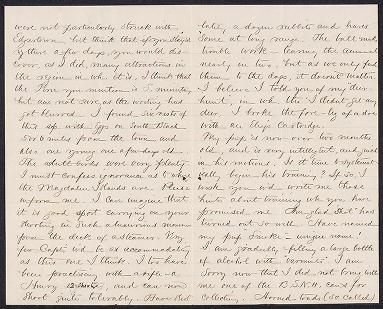 were not particularly struck with
Edgertown, but think that if you stayed
there a few days, you would dis-
cover, as I did, many attractions in
the region in wh. it is. I think that
the Tern you mention is S.
but am not sure as the writing has
got blurred. I found six nests of
this sp. with eggs on South Beach
5 or 6 miles from the town and
also one young one a few days old.
The adult birds were very plenty.
I must confess ignorance as to where
the Magdalen Islands are. Please
inform me. I can imagine that
it is good sport carrying on your
shooting in such a luxurious manner
from the deck of a steamer. Very
few Capts. w'd be so accommodating
as this one I think. I too have
been practising with a rifle - a
Henry and can now
shoot quite tolerably. Have shot
lately a dozen rabbits and hares
some at long range. The ball made
terrible work - tearing the animal
nearly in two, but as we only feed
them to the dogs, it doesn't matter.
I believe I told you of my deer
hunt, in wh. tho I didn't get any
deer, I broke the fore-leg of a doe
with an Eley Cartridge.
My pup is now over two months
old and is very intelligent, and quick
in his motions. Is it time to systemat-
ically begin his training? If so, I
wish you w'd write me those
hints about training wh. you have
promised me. Am glad that has
turned out so well. Have named
my pup - unique name!
I am gradually filling a large bottle
of alcohol with "varmints". I am
sorry now that I did not bring with
me one of the B.S.N.H. cans for
collecting. Horned toads (so called)